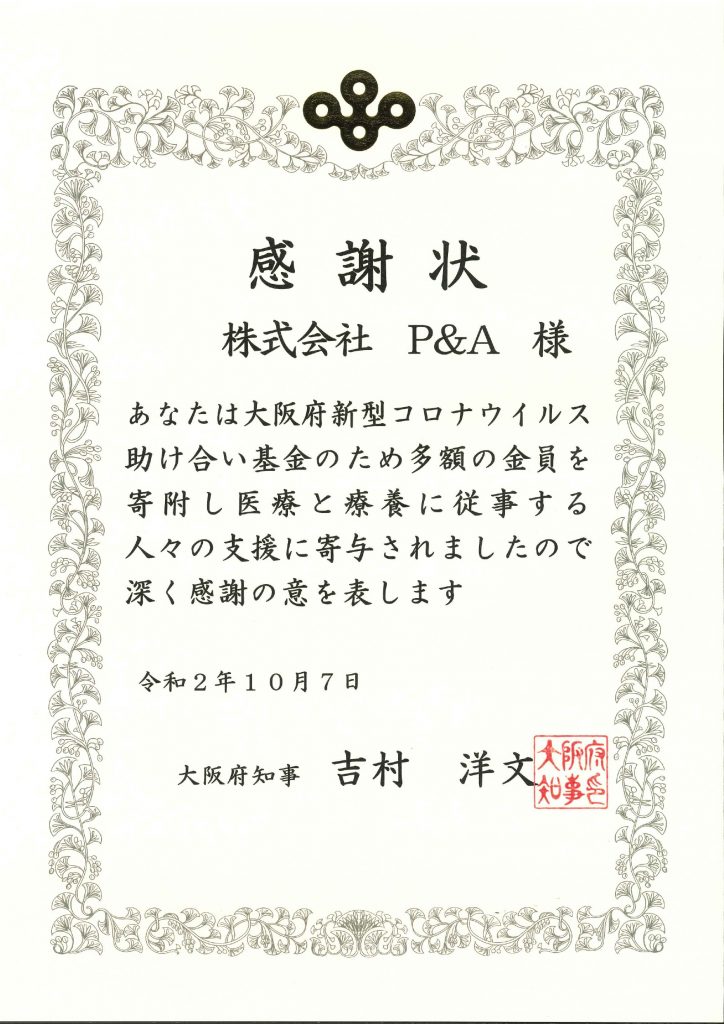 感謝状
株式会社 P&A 様
あなたは大阪府新型コロナウイルス
助け合い基金のため多額の金員を
寄附し医療と療養に従事する
人々の支援に寄与されましたので
深く感謝の意を表します
令和２年１０月７日
大阪府知事 吉村 洋文
大阪府
知事印